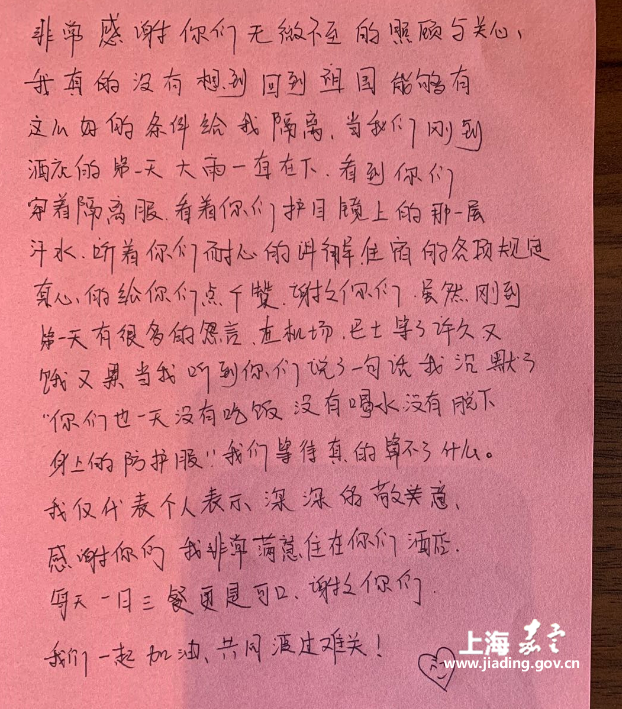 非常感谢你们无微不至的照顾与关心、
我真的没有想到回到祖国能够有
这么好的条件给我隔离，当我们刚到
酒店的第一天大雨一直在下.看到你们
穿着隔离服.看着你们护目镜上的那一层
汗水.听着你们耐心的讲解住宿的各项规定
真心的给你们点个赞.谢谢你们.虽然刚到
第一天有很多的怨言.在机场.巴士等了许久又
饿又累当我听到你们说了一句话我沉默了
"你们也一天没有吃饭没有喝水没有脱下
身上的防护服"!我们等待真的算不了什么。
我仅代表个人表示深深的敬意、
感谢你们我非常满意住在你们酒店.
每天一日三餐更是可口、谢谢你们.
我们一起加油、共同渡过难关！
上海嘉定
www.jiading.gov.cn